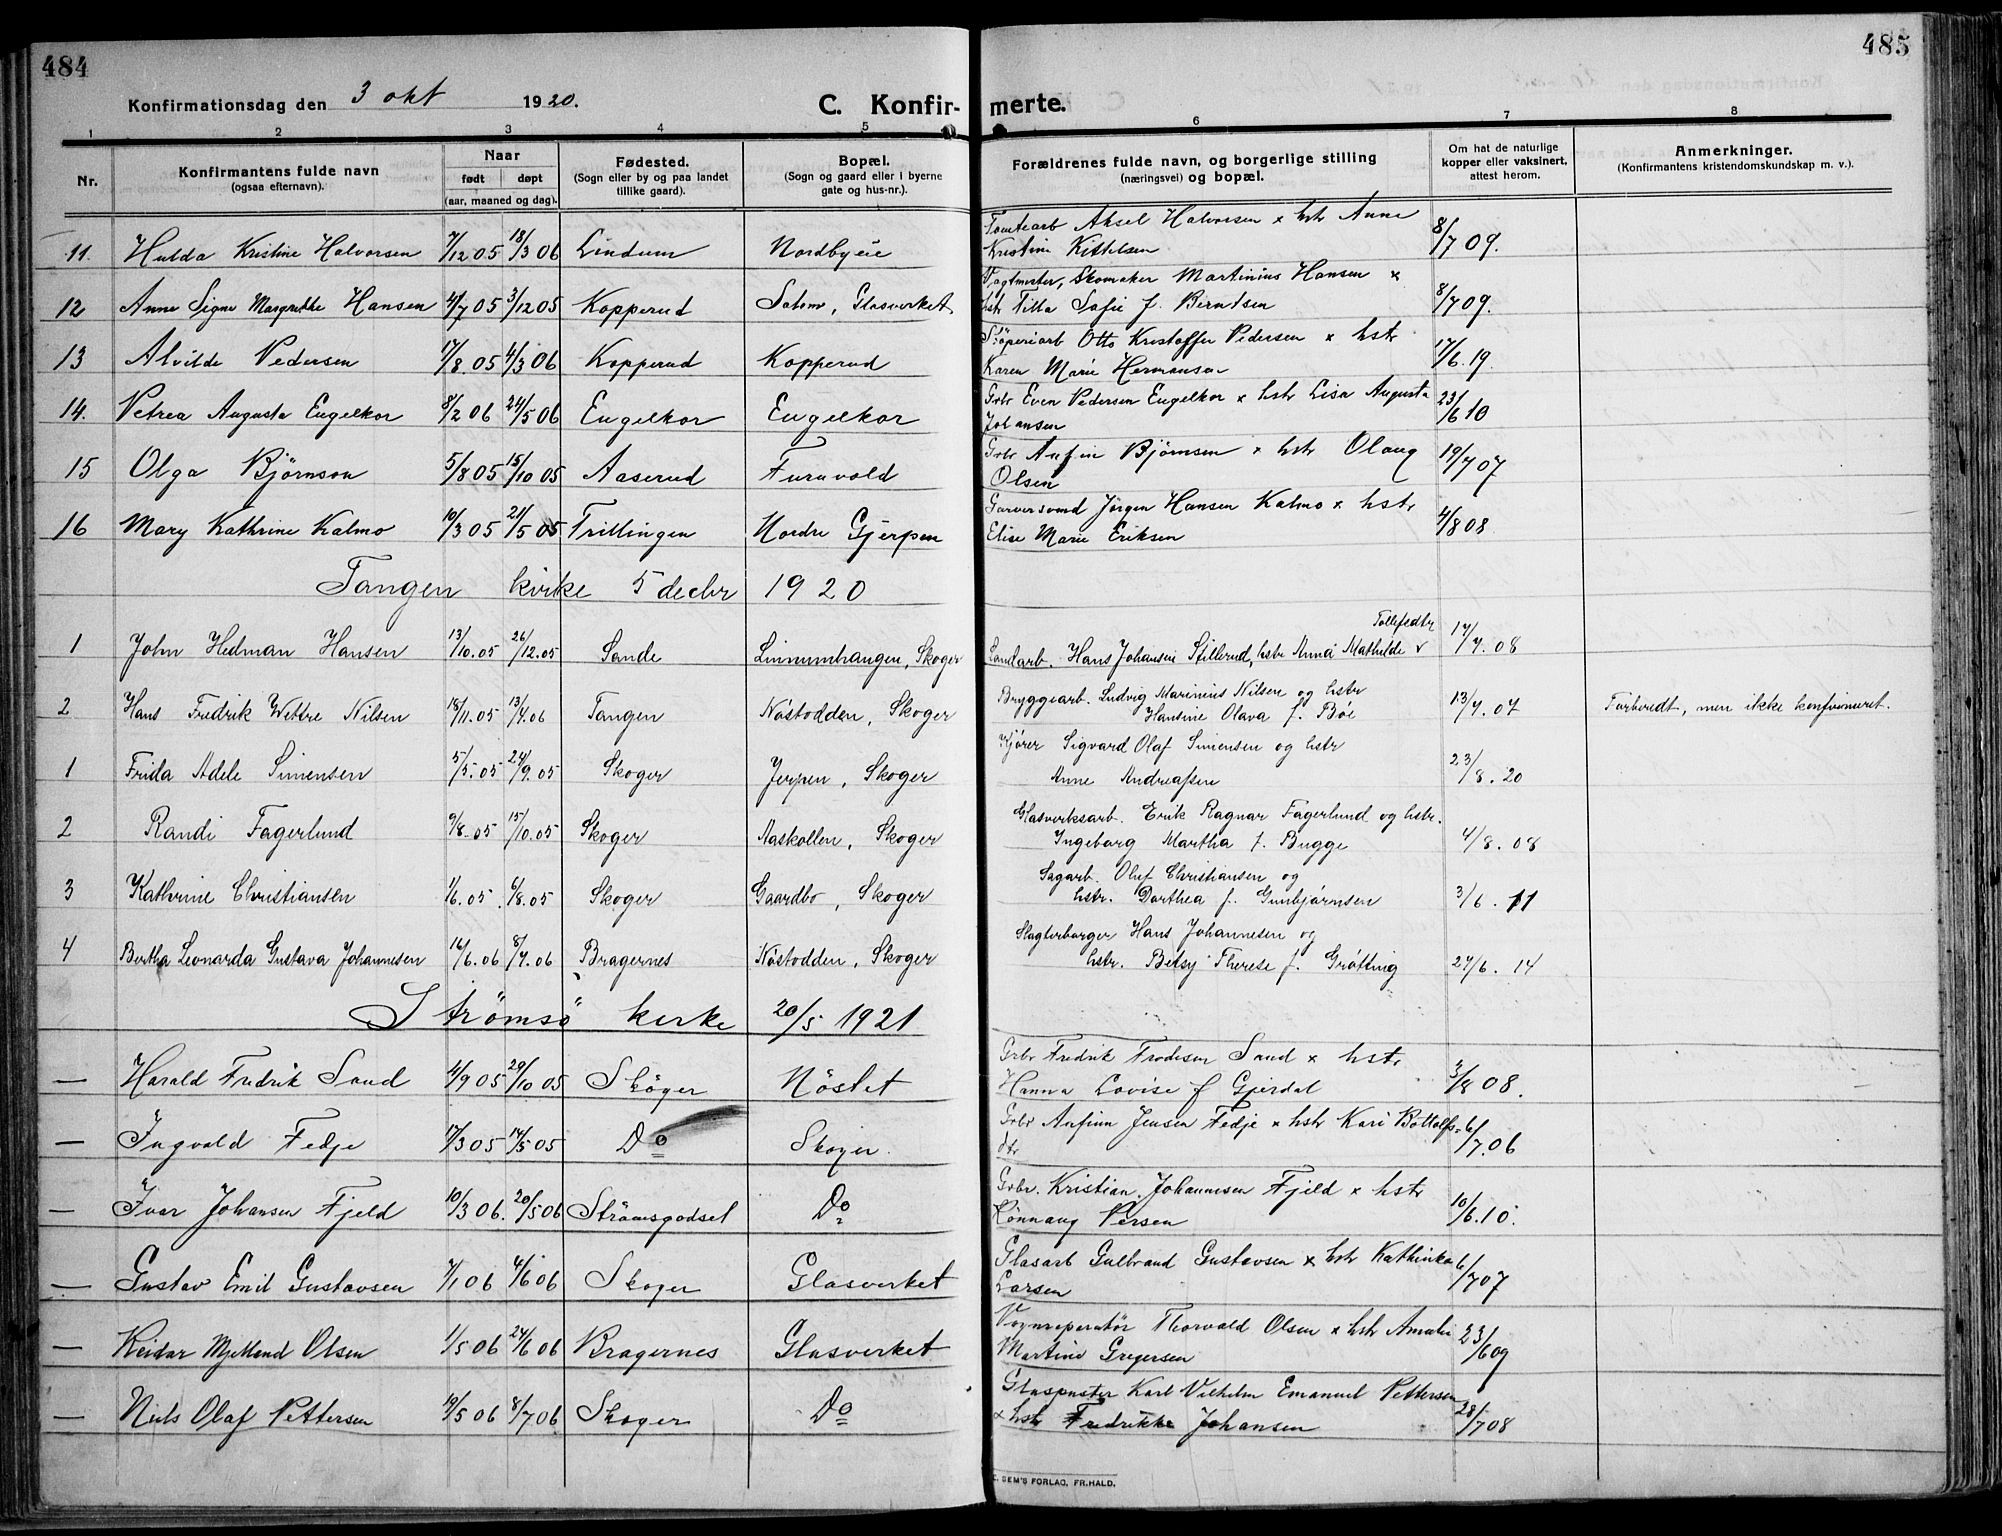 484
485
Konfirmationsdag den 3 okt 1920.
C. Konfirmerte.
1 2 3 4 5 6 7 8
Nr.
Konfirmantens fulde navn
(ogsaa efternavn).
Naar
født døpt
(aar, maaned og dag).
Fødested.
(Sogn eller by og paa landet
tillike gaard).
Bopæl.
(Sogn og gaard eller i byerne
gate og hus-nr.).
Forældrenes fulde navn, og borgerlige stilling
(næringsvei) og bopæl.
Om hat de naturlige
kopper eller vaksinert,
attest herom.
Anmerkninger.
(Konfirmantens kristendomskundskap m. v.).
11. Hulda Kristine Halvorsen 7/12 05 18/3 06 Lindum Nordbyeie Tomtearb Aksel Halvorsen x hstr Anne
Kristine Kittelsen 8/7 09.
12 Anne Signe Margrethe Hansen 4/7 05 3/12 05 Kopperud Glasverket Vagtmester, Skomaker Martinius Hansen x
hstr Tilla Sofie f. Berntsen 8/7 09.
13 Alvilde Pedersen 17/8. 05 4/3 06 Kopperud Kopperud Støperiarb Otto Kristoffer Pedersen x hstr
Karen Marie Hermansen 17/6. 19.
14. Petrea Augusta Engelkor 8/2 06 24/5 06 Engelkor Engelkor Grbr Even Pedersen Engelkor x hstr Lisa Augusta
Johansen 23/6 10
15 Olga Bjørnson 5/8 05 15/10 05 Aaserud Furuvold Grbr Anfin Bjørnsen x hstr Olaug
Olsen 19/7 07
16 Mary Kathrine Kalmo 10/3 05 21/5 05 Trillingen Nordre Gjerpen Garversvend Jørgen Hansen Kalmo x hstr
Elise Marie Eriksen 4/8 08
Tangen kirke 5 decbr 1920
1 John Hedman Hansen 13/10. 05 26/12. 05 Sande Linnumhangen, Skoger Tollefsdtr
Landarb. Hans Johansen Stillerud, hstr Anna Mathilde 17/7. 08
2 Hans Fredrik Wettre Nilsen 18/11. 05 13/4. 06 Tangen Nöstodden, Skoger Bryggearb. Ludvig Marinius Nilsen og hstr
Hansine Olava f. Böe 13/7. 07 Forberedt, men ikke konfirmeret.
1 Frida Adele Simensen 5/5. 05 24/9. 05 Skoger Jerpen, Skoger Kjörer Sigvard Olaf Simensen og hstr
Anne Andreassen 23/8. 20
2 Randi Fagerlund 9/8. 05 15/10. 05 Skoger Aaskollen, Skoger Glasverksarb. Erik Ragnar Fagerlund og hstr.
Ingeborg Martha f. Bugge 4/8. 08
3 Kathrine Christiansen 1/6. 05. 6/8. 05 Skoger Gaardbo, Skoger Sagarb. Oluf Christiansen og
hstr. Dorthea f. Gunbjørnsen 3/6. 11
4 Bertha Leonarda Gustava Johannesen 16/6. 06 8/7. 06 Bragernes Nöstodden, Skoger Slagterborger Hans Johannesen og
hstr. Betsy Therese f. Grötting 27/6. 14
Strömsö kirke 20/5 1921
— Harald Fredrik Sand 4/9 05 29/10 05 Skoger Nöstet Grbr Fredrik Frodesen Sand x hstr
Hanna Lovise f Gjerdal 3/8 08.
— Ingvald Fedje 17/3 05 14/5 05 Do Skoger. Grbr Anfinn Jensen Fedje x hstr Kari Bottolfs-
dtr 6/7. 06
— Ivar Johansen Fjeld 10/3 06. 20/5 06 Strömsgodset Do Grbr. Kristian Johannesen Fjeld x hstr
Rönnaug Persen 10/6. 10.
— Gustav Emil Gustavsen 7/1 06 4/6 06 Skoger Glasverket Glasarb Gulbrand Gustavsen x hstr Kathinka
Larsen 6/7 07
— Reidar Mjelland Olsen 1/5 06 24/6 06 Bragernes Glasverket Vognreparatör Thorvald Olsen x hstr Amalie
Martine Gregersen 23/6 09
— Niels Olaf Pettersen 19/5 06 8/7 06 Skoger Do Glaspuster Karl Vilhelm Emanuel Pettersen
x hstr Fredrikke Johansen 28/7 08
SEM'S FORLAG, FR.HALD.